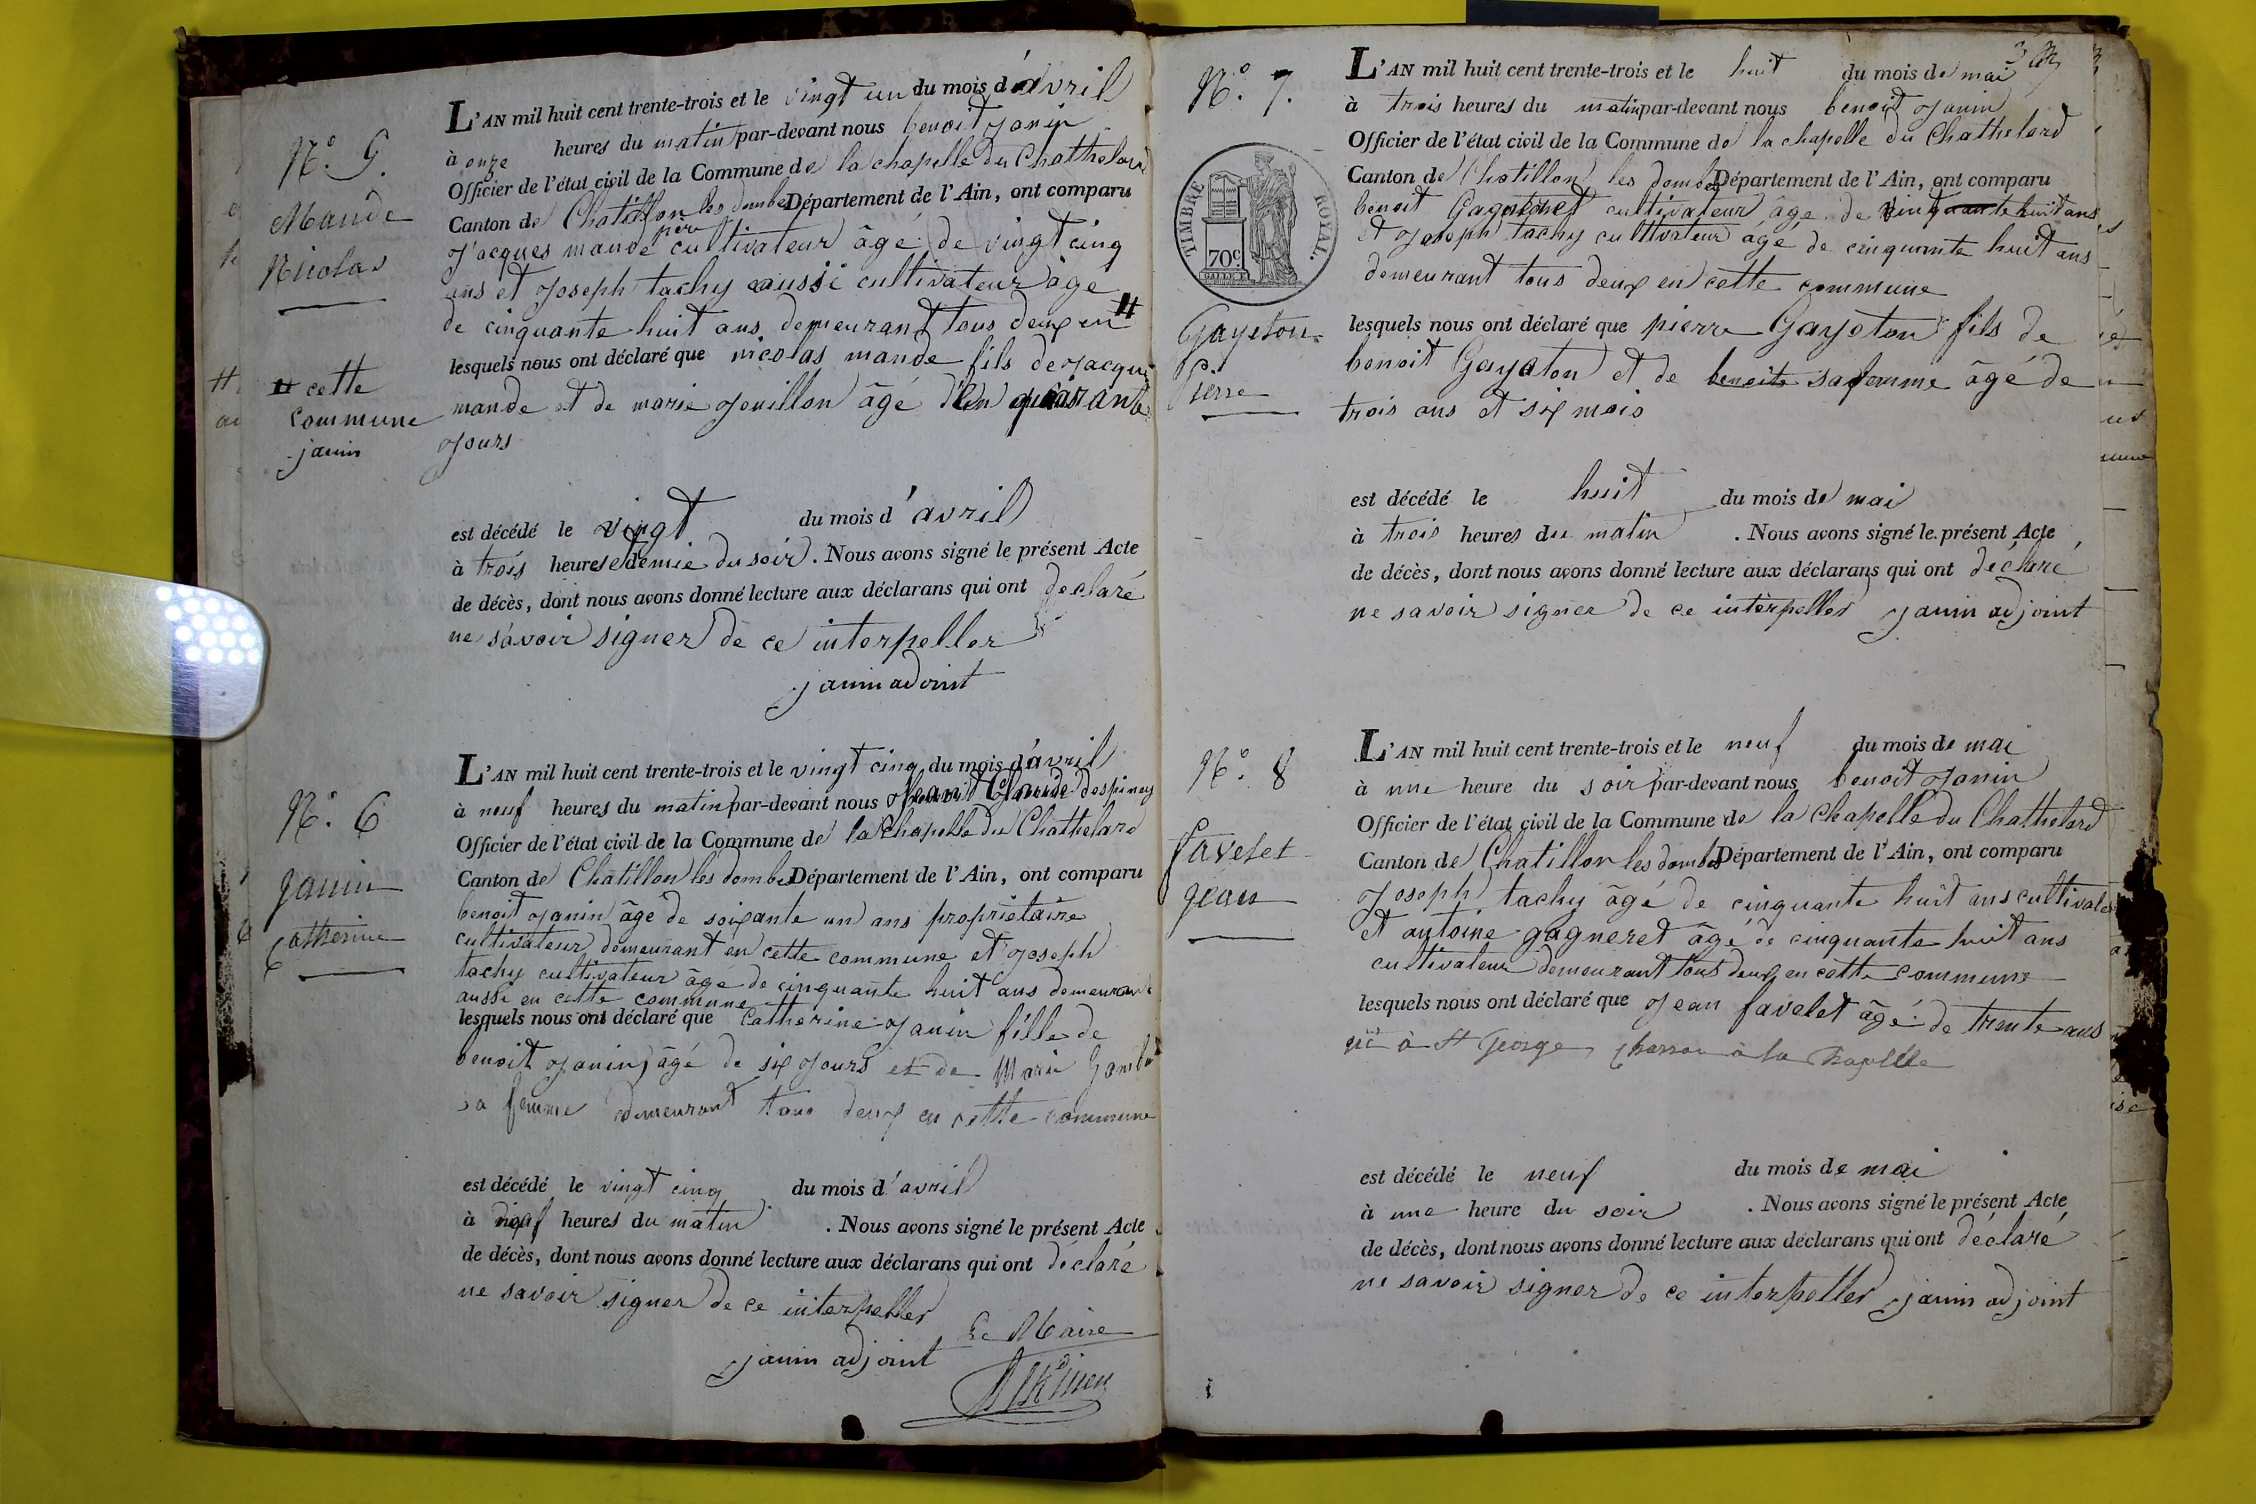 N.° 5.
Mande
Nicolas
L'AN mil huit cent trente-trois et le vingt un du mois d'avril
à onze heures du matin par-devant nous benoit Janin
Officier de l'état civil de la Commune de la chapelle du Chathelard
Canton de Chatillon les dombes Département de l'Ain, ont comparu
Jacques mande père cultivateur âgé de vingt cinq
ans et Joseph tachy aussi cultivateur âgé
de cinquante huit ans demeurant tous deux en #
lesquels nous ont déclaré que nicolas mande fils de Jacque
mande et de marie Jouillon âgé d'un quarante
Jours
# cette
commune
janin
est décédé le vingt du mois d'avril
à trois heures et demie du soir. Nous avons signé le présent Acte
de décès, dont nous avons donné lecture aux déclarans qui ont declaré
ne savoir signer de ce interpeller
janin adoint
N.° 6
Janin
Catherine
L'AN mil huit cent trente-trois et le vingt cinq du mois d'avril
à neuf heures du matin par-devant nous Jean Claude Despiney
Officier de l'état civil de la Commune de la Chapelle du Chathelard
Canton de Chatillon les dombes Département de l'Ain, ont comparu
benoit Janin âgé de soixante un ans propriétaire
cultivateur demeurant en cette commune et Joseph
tachy cultivateur âgé de cinquante huit ans demeurant
aussi en cette commune
lesquels nous ont déclaré que Catherine Janin fille de
benoit Janin âgé de six Jours et de Marie
sa femme demeurant tous deux en cette commune
est décédé le vingt cinq du mois d'avril
à neuf heures du matin. Nous avons signé le présent Acte
de décès, dont nous avons donné lecture aux déclarans qui ont déclaré
ne savoir signer de ce interpeller
janin adjoint Le Maire
N.° 7.
TIMBRE ROYAL.
70c.
Gayeton
Pierre
L'AN mil huit cent trente-trois et le huit du mois de mai
à trois heures du matin par-devant nous benoit Janin
Officier de l'état civil de la Commune de la chapelle du Chathelard
Canton de Chatillon les dombes Département de l'Ain, ont comparu
benoit cultivateur âgé de huit ans
et Joseph tachy cultivateur âgé de cinquante huit ans
demeurant tous deux en cette commune
lesquels nous ont déclaré que pierre Gayeton fils de
benoit Gayoton et de benoite sa femme âgé de
trois ans et six mois
est décédé le huit du mois de mai
à trois heures du matin. Nous avons signé le présent Acte
de décès, dont nous avons donné lecture aux déclarans qui ont déclaré
ne savoir signer de ce interpeller janin adjoint
N.° 8
favelet
jean
L'AN mil huit cent trente-trois et le neuf du mois de mai
à une heure du soir par-devant nous benoit Janin
Officier de l'état civil de la Commune de la chapelle du Chathelard
Canton de Chatillon les dombes Département de l'Ain, ont comparu
Joseph tachy âgé de cinquante huit ans cultivateu
et antoine gagneret âgé de cinquante huit ans
cultivateur demeurant tous deux en cette commune
lesquels nous ont déclaré que Jean favelet âgé de trente ans
né à St George, à la Chapelle
est décédé le neuf du mois de mai
à une heure du soir. Nous avons signé le présent Acte
de décès, dont nous avons donné lecture aux déclarans qui ont déclaré
ne savoir signer de ce interpeller janin adjoint